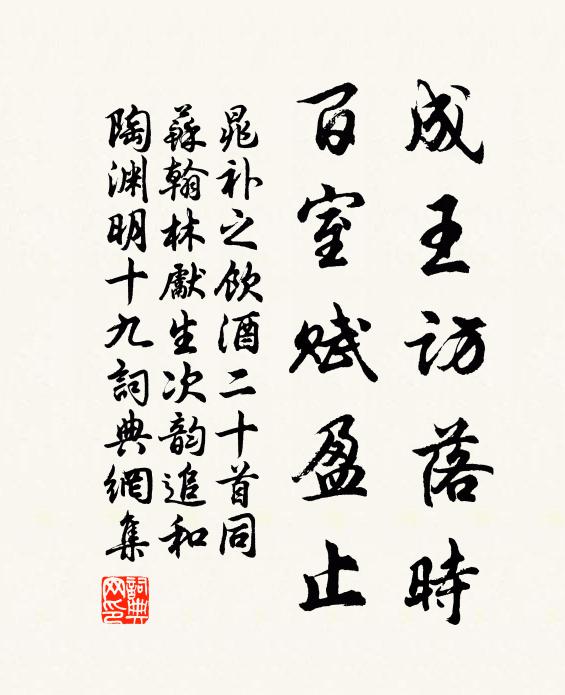 成王訪落時
百室賦盈止
晁补之飲酒二十首同
蘇翰林獻生次韵追和
陶渊明十九詞典網集
詞典
网印